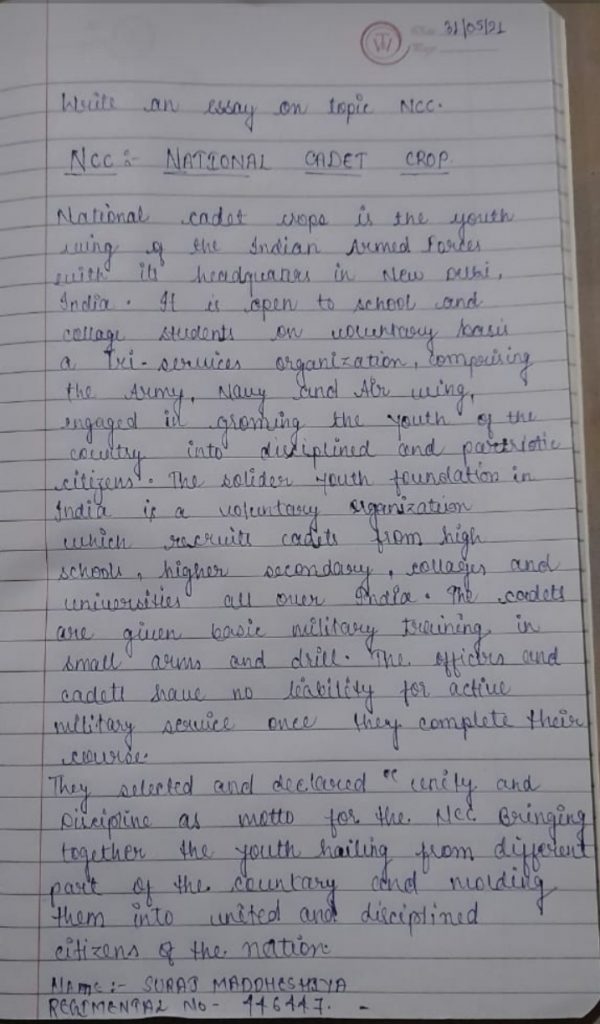 31/05/21
Write an essay on topic NCC.
NCC :- NATIONAL CADET CROP.
National cadet crops is the youth
wing of the Indian Armed Forces
with its headquarters in New Delhi,
India. It is open to school and
collage students on voluntary basis
a Tri-services organization, comprising
the Army, Navy and Air wing,
engaged in groming the youth of the
country into disciplined and partriotic
citizens. The solider youth foundation in
India is a voluntary organization
which recruits cadets from high
schools, higher secondary, collages and
universities all over India. The cadets
are given basic military training in
small arms and drill. The officers and
cadets have no leability for active
military service once they complete their
course.
They selected and declared "unity and
Discipline as motto for the NCC Bringing
together the youth hailing from different
part of the. countary and molding
them into united and disciplined
citizens of the nation.
Name :- SURAJ MADDHESHIYA
REGIMENTAL No - 446447. -